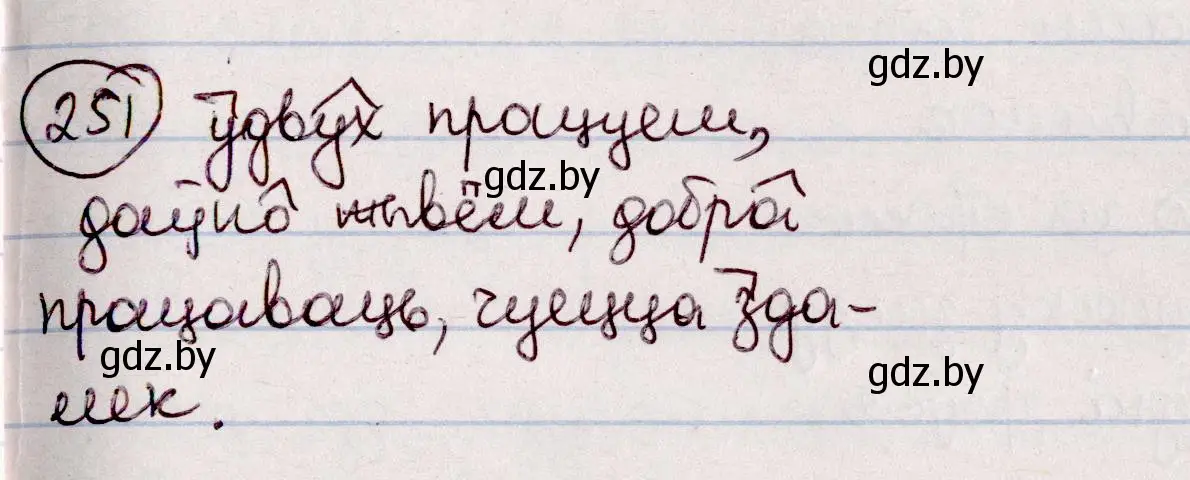 251 Ўдвух працуем,
даўно жывём, добра
працаваць, чуецца зда-
лек.
gdz.by
gdz.by
gdz.by
gdz.by